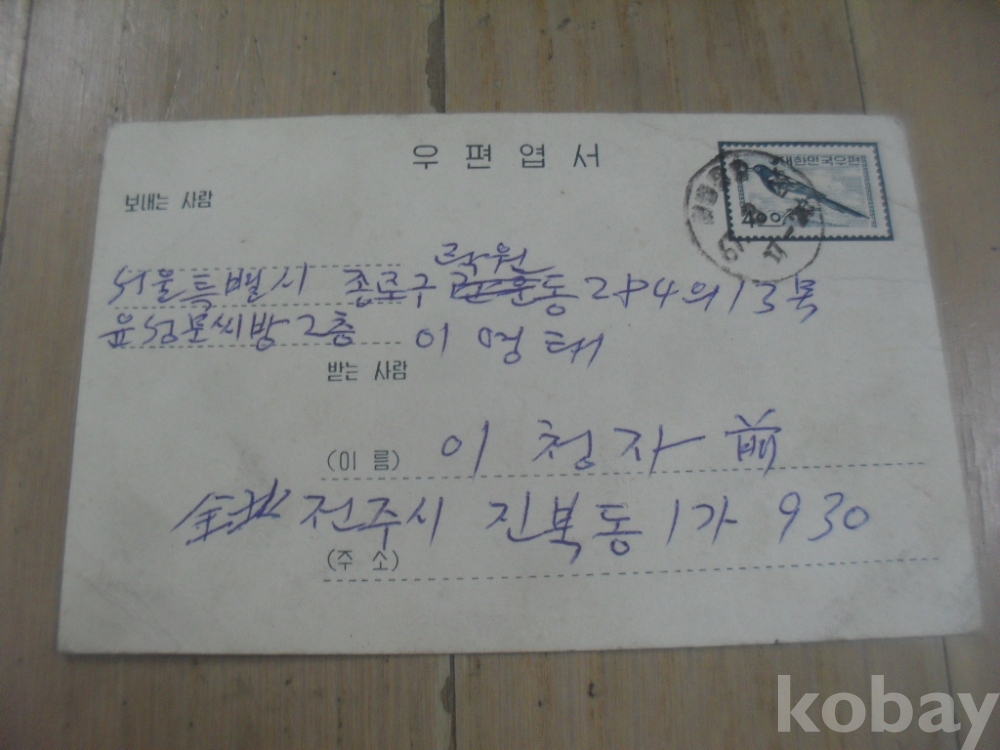 우편엽서
대한민국우편
4.00
보내는 사람
락원
서울특별시 종로구 동 의 13 목
윤성모씨방 2층 이명태
받는 사람
(이 름) 이 청 자 前
全北 전주시 진북동 1가 930
(주 소)
kobay